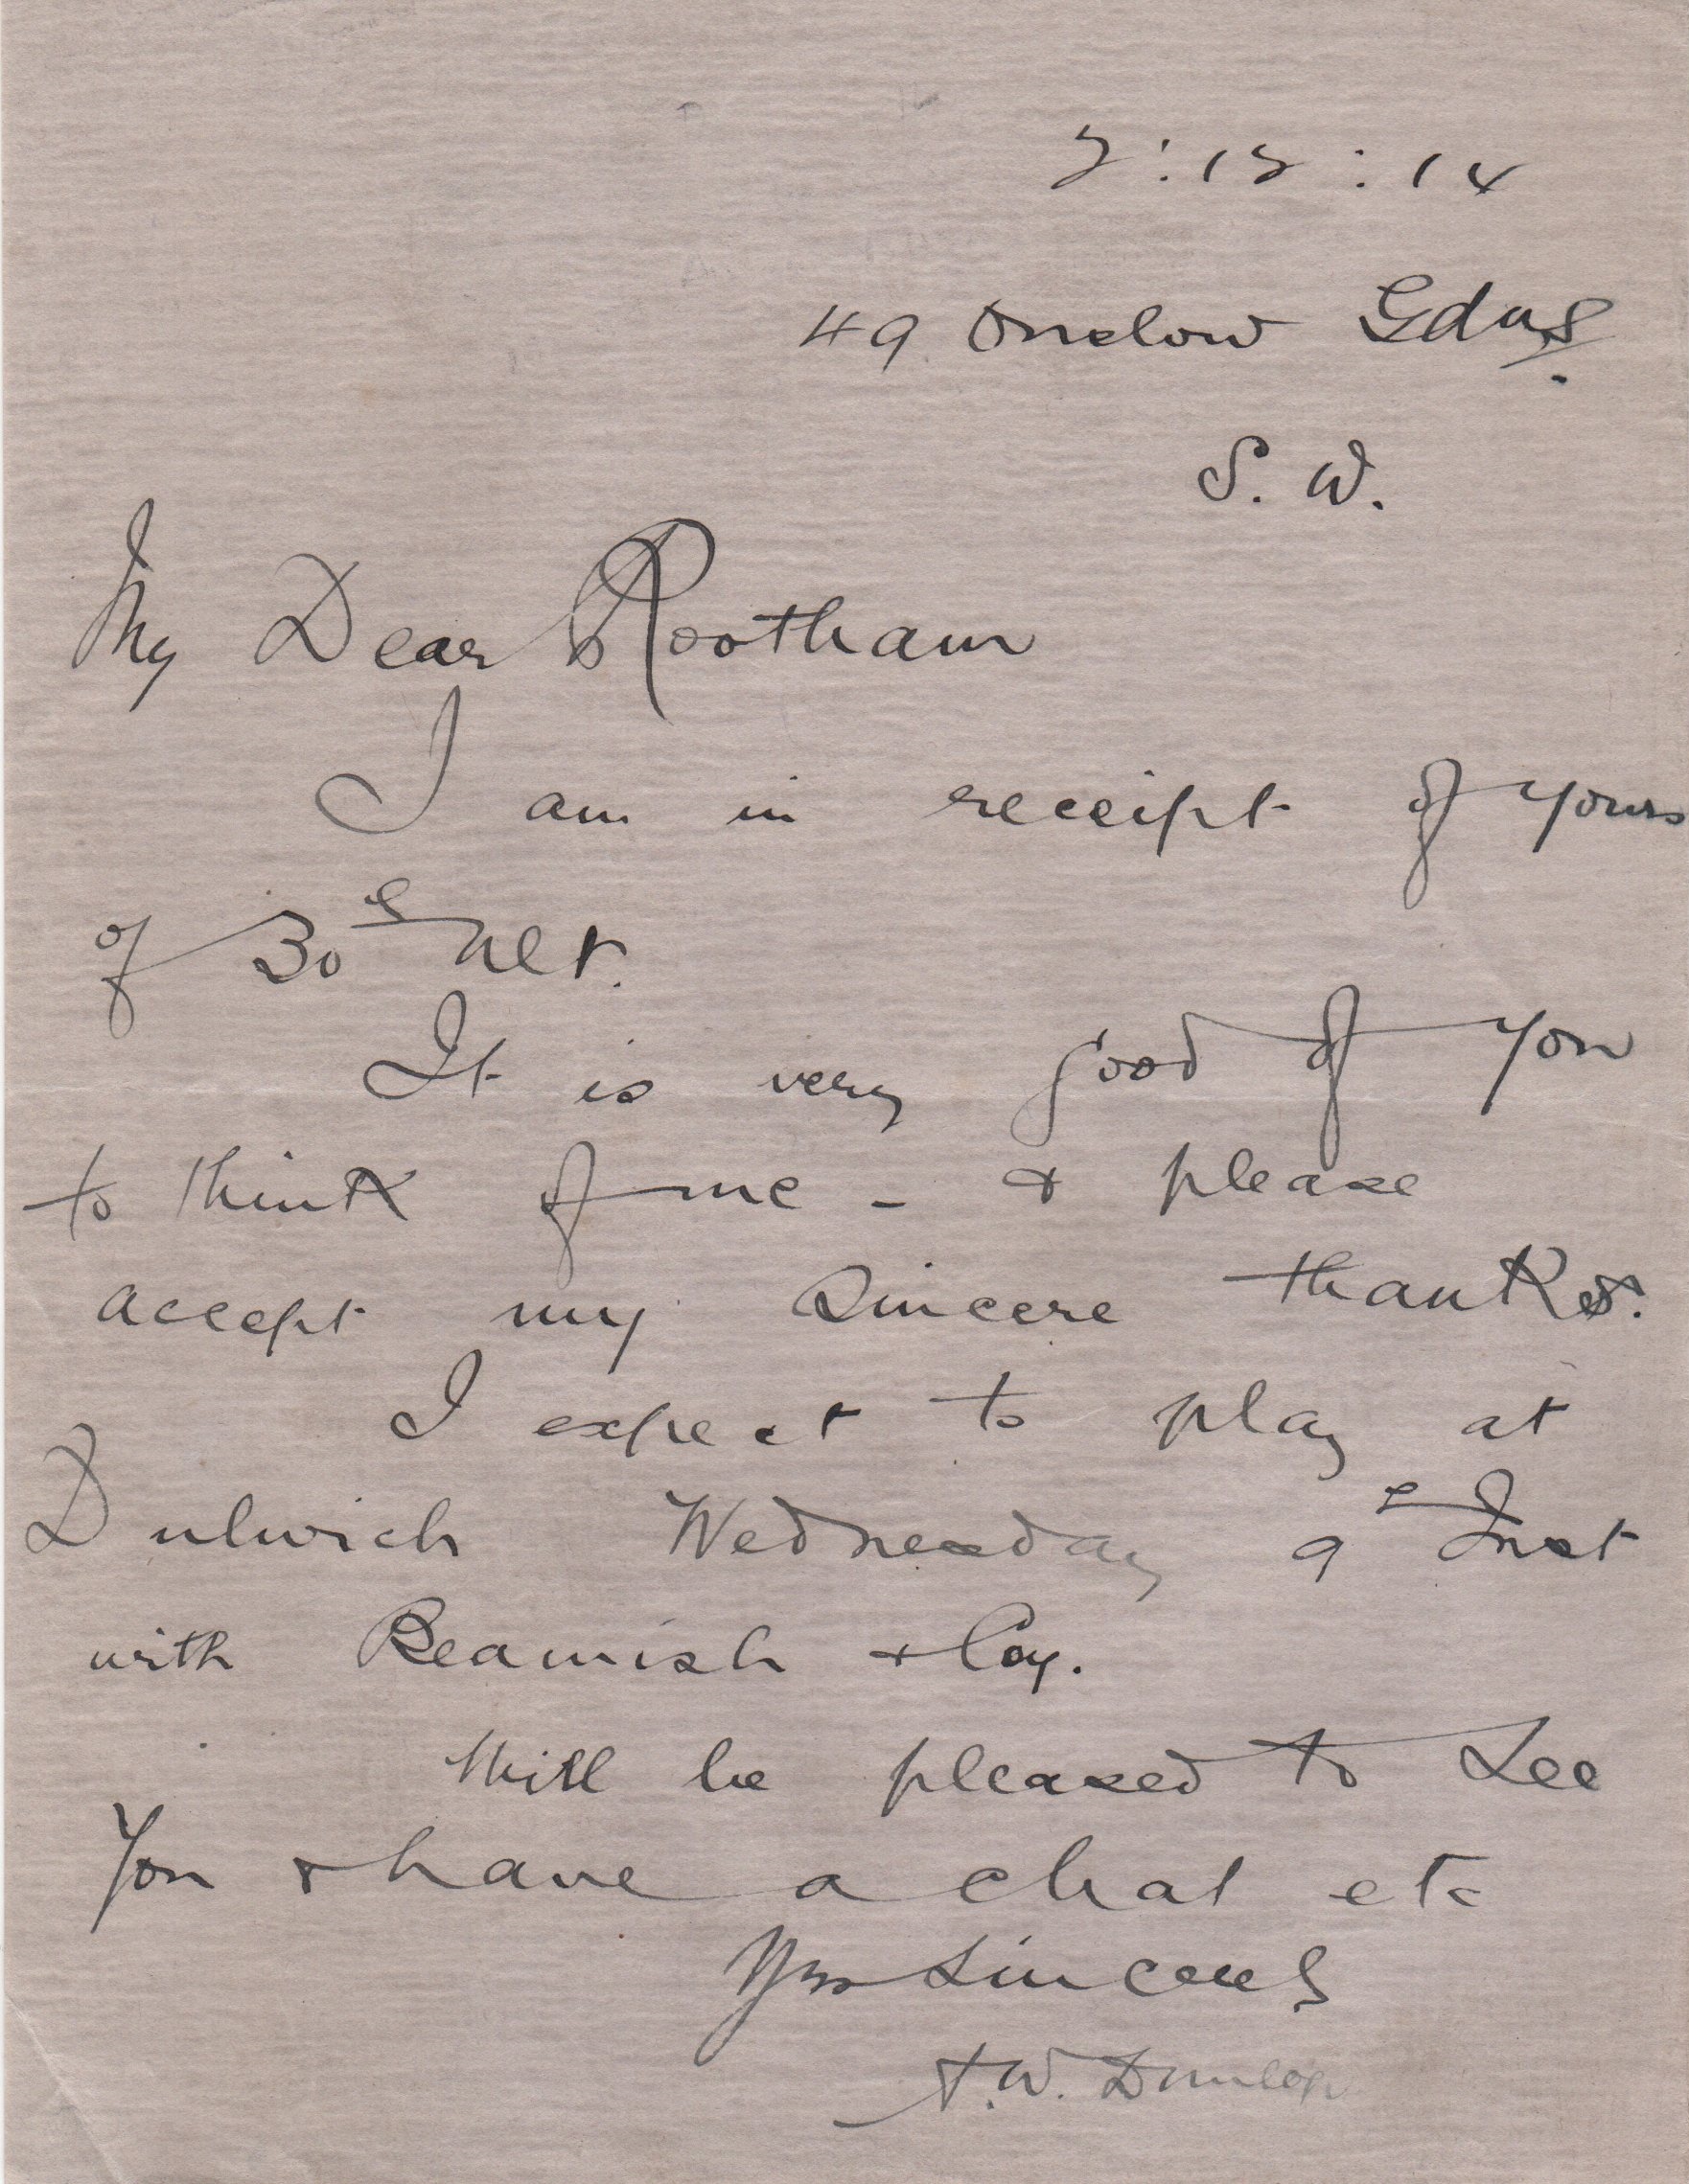 2:12:14
49 Onslow Gdns
S. W.
My Dear Rootham
I am in receipt of yours
of 30th ult.
It is very good of you
to think of me - & please
accept my sincere thanks.
I expect to play at
Dulwich Wednesday 9th Inst
with Beamish & Coy.
Will be pleased to see
you & have a chat etc
Yrs Sincerely
A.W. Dunlop